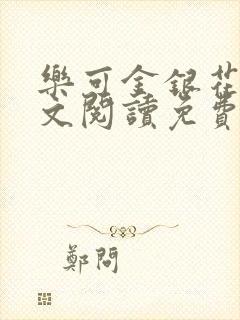 樂可金銀花
文閱讀免費
鄭問